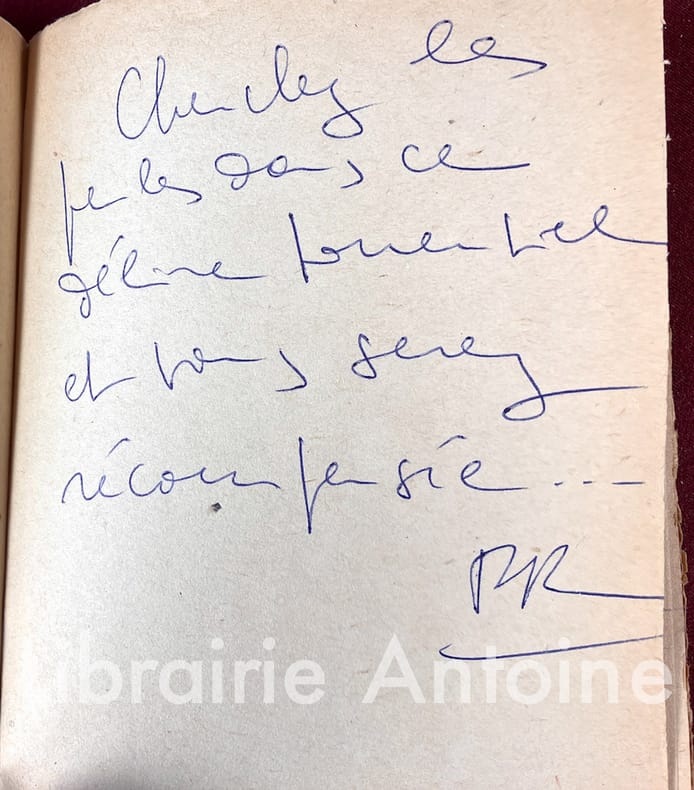 Cherchez les
perles dans ce
délire torrentiel
et vous serez
récompensée ...
RR
Librairie Antoine